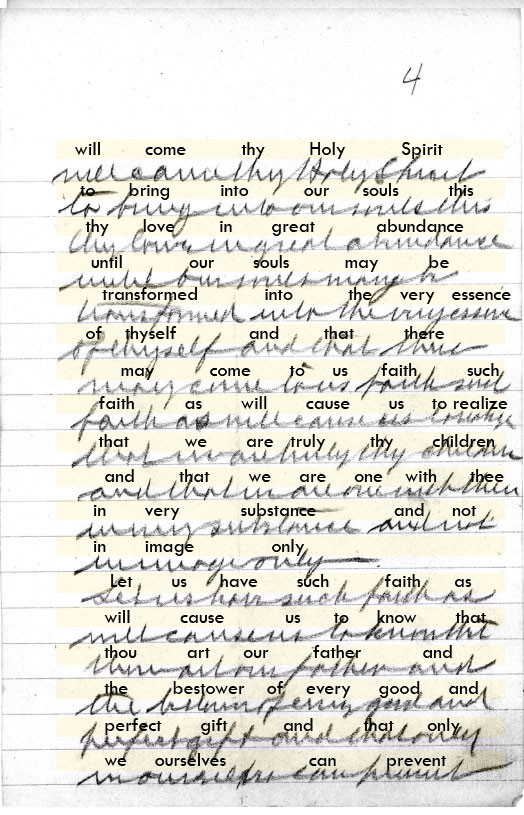 4
will come thy Holy Spirit
will come thy Holy Spirit
to bring into our souls this
to bring into our souls this
thy love in great abundance
thy love in great abundance
until our souls may be
until our souls may be
transformed into the very essence
transformed into the very essence
of thyself and that there
of thyself and that there
may come to us faith such
may come to us faith such
faith as will cause us to realize
faith as will cause us to realize
that we are truly thy children
that we are truly thy children
and that we are one with thee
and that we are one with thee
in very substance and not
in very substance and not
in image only
in image only.
Let us have such faith as
Let us have such faith as
will cause us to know that
will cause us to know that
thou art our father and
thou art our father and
the bestower of every good and
the bestower of every good and
perfect gift and that only
perfect gift and that only
we ourselves can prevent
we ourselves can prevent